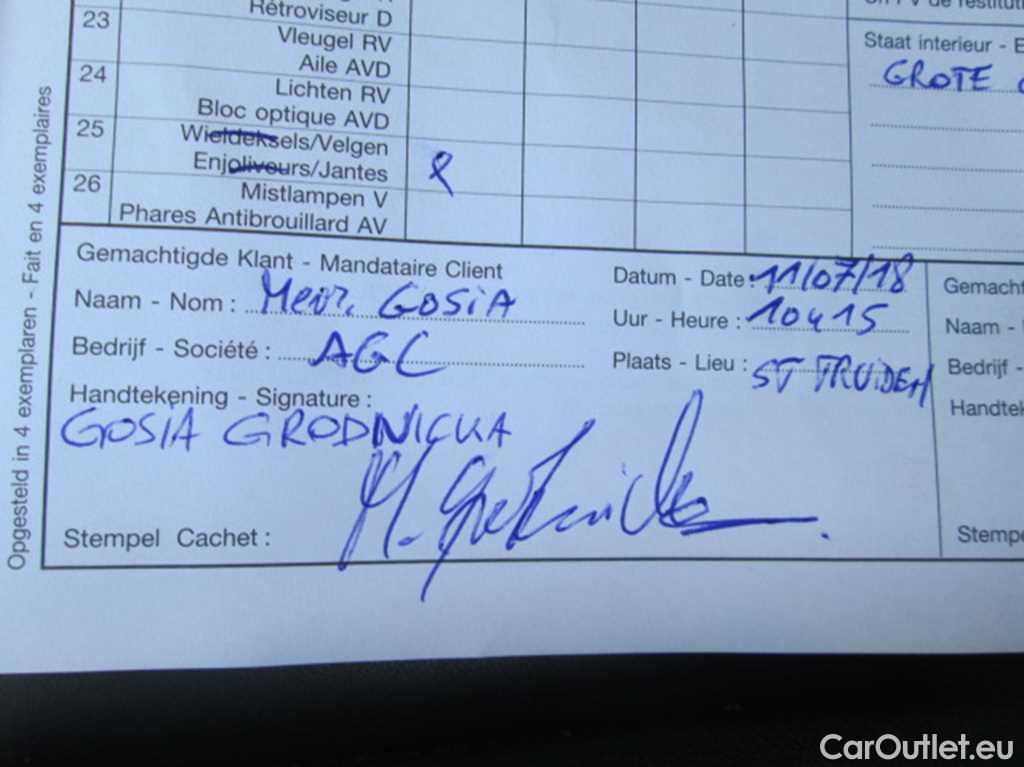 23
Rétroviseur D
Vleugel RV
Aile AVD
24
Lichten RV
Bloc optique AVD
25
Wieldeksels/Velgen
Enjoliveurs/Jantes
26
Mistlampen V
Phares Antibrouillard AV
Staat interieur - E
GROTE
Opgesteld in 4 exemplaren - Fait en 4 exemplaires
Gemachtigde Klant - Mandataire Client
Naam - Nom : Mevr. GOSIA
Bedrijf - Société : AGC
Handtekening - Signature :
GOSIA GRODNICKA
Stempel Cachet :
Datum - Date : 11/07/18
Uur - Heure : 10u15
Plaats - Lieu : ST TRUIDEN
Gemacht
Naam -
Bedrijf -
Handtek
Stempe
CarOutlet.eu